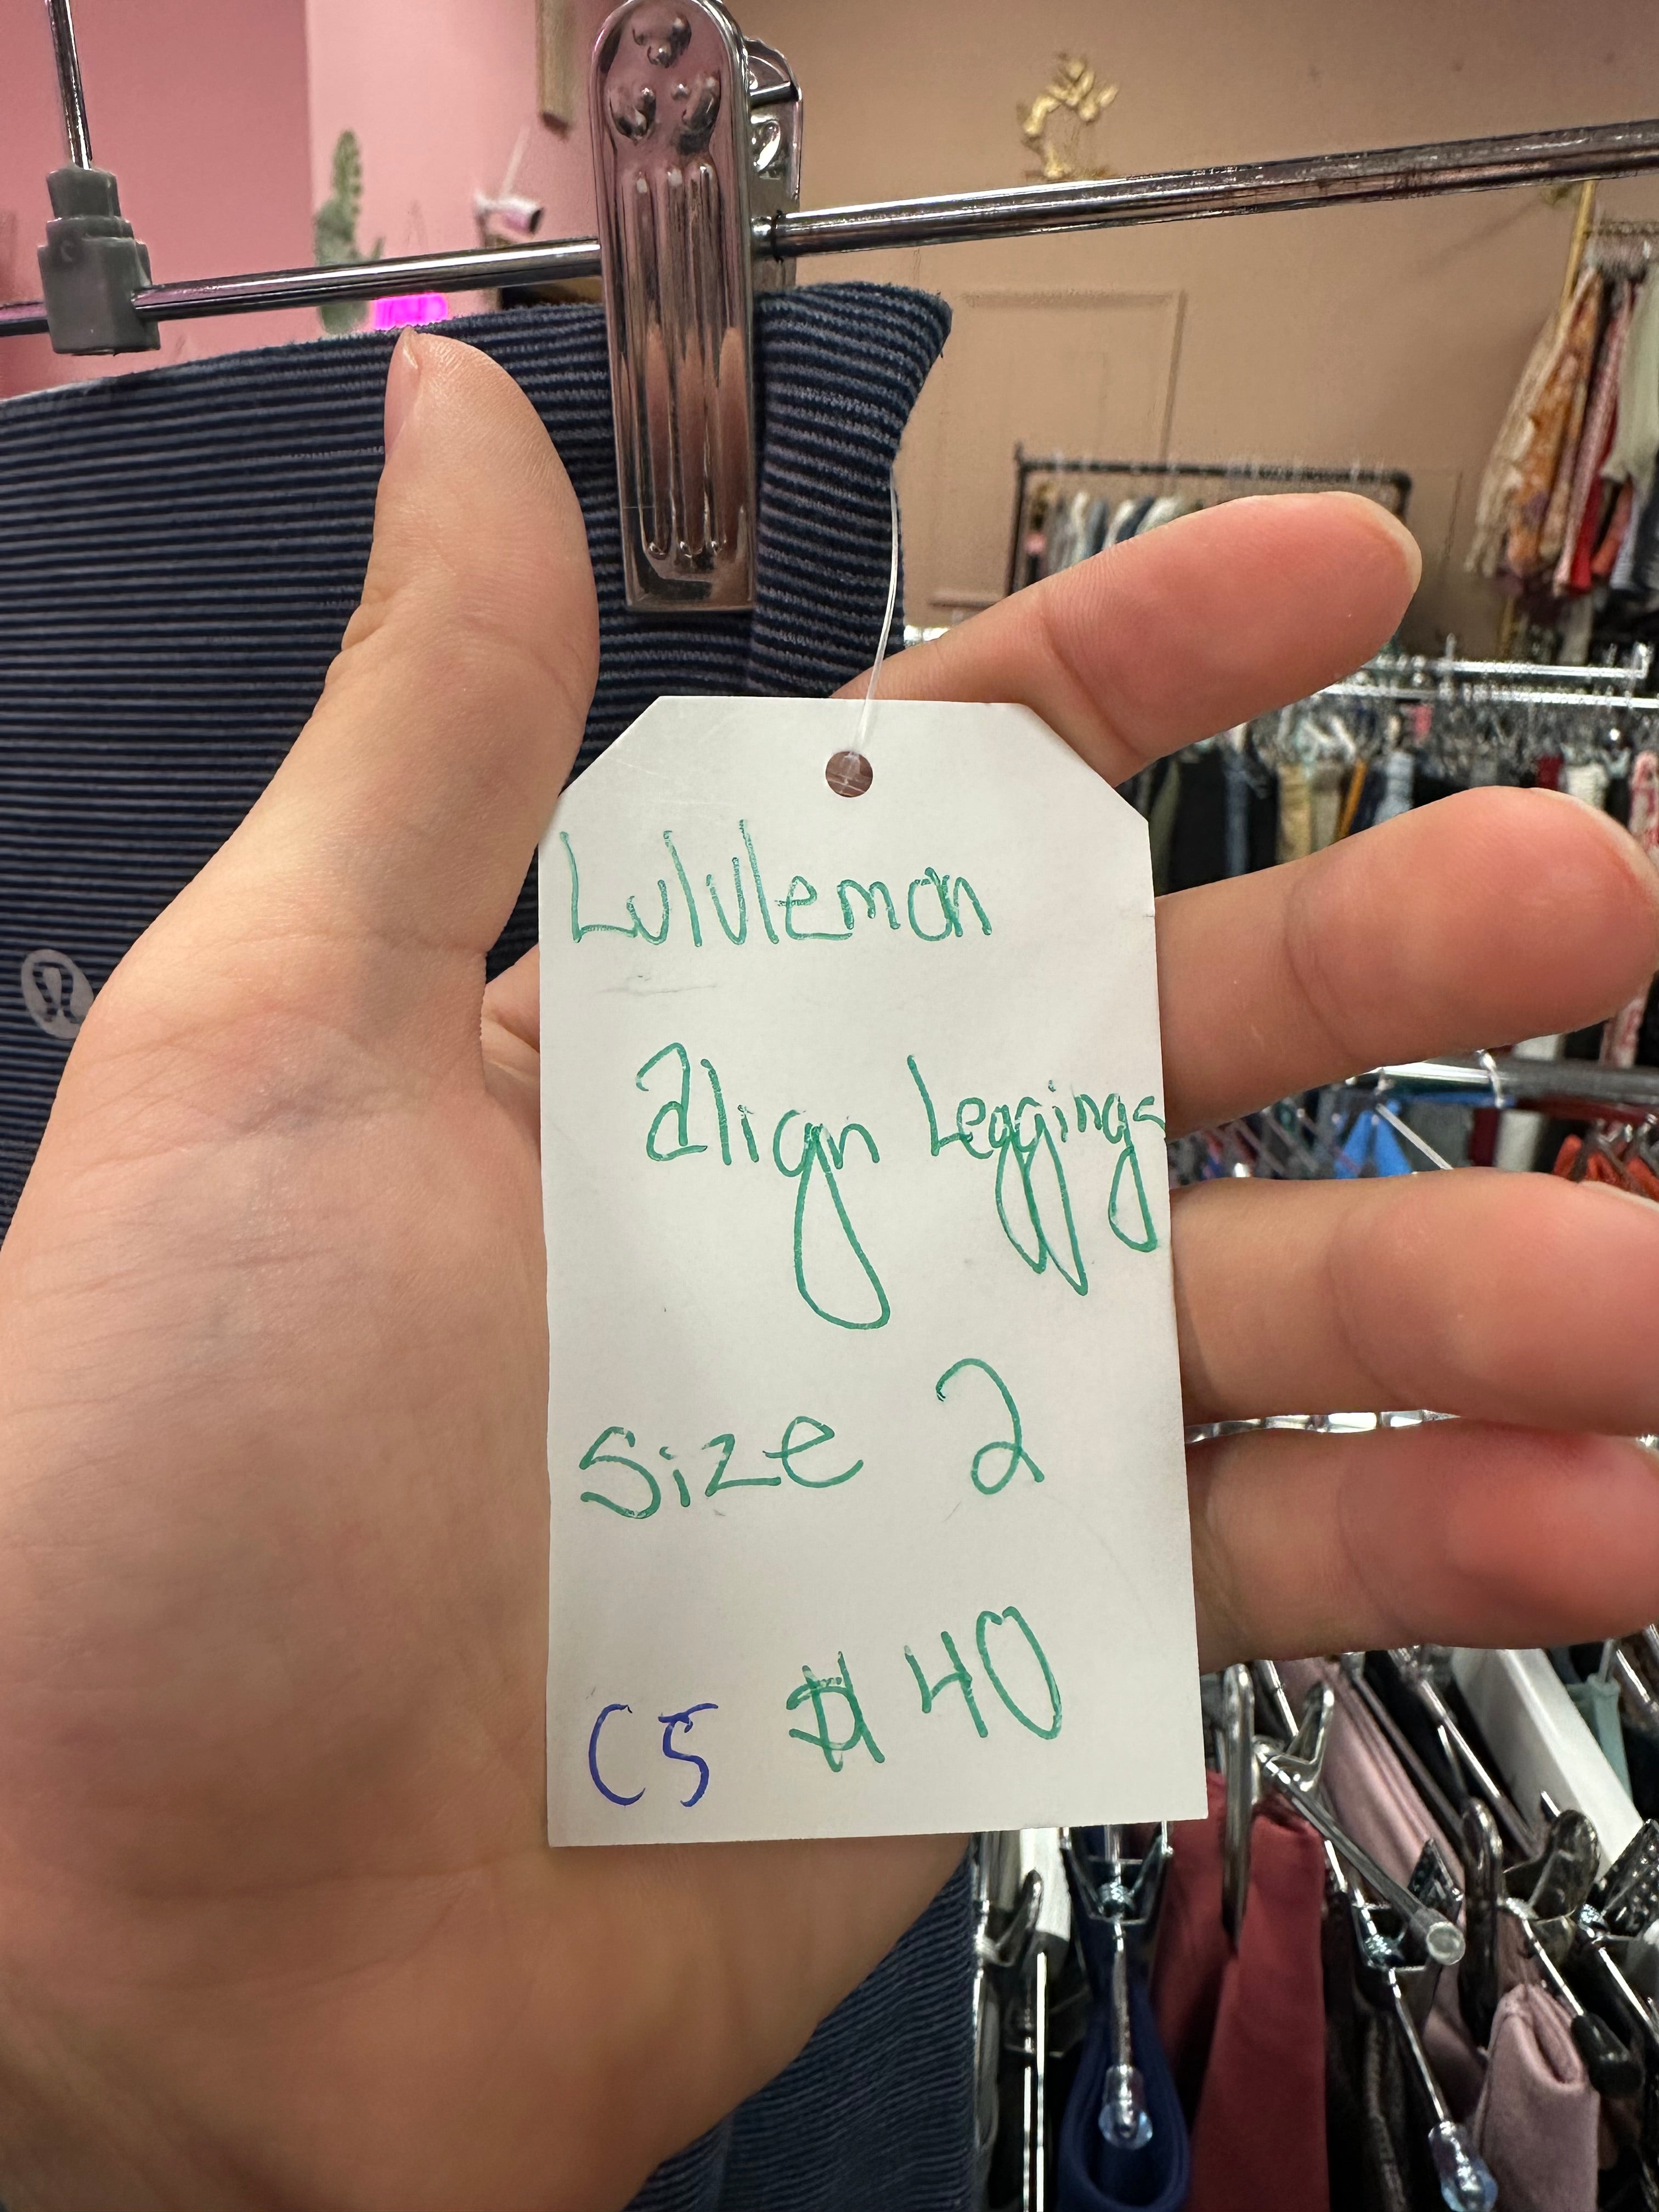 Lululemon
Align Leggings
Size 2
C5 $40